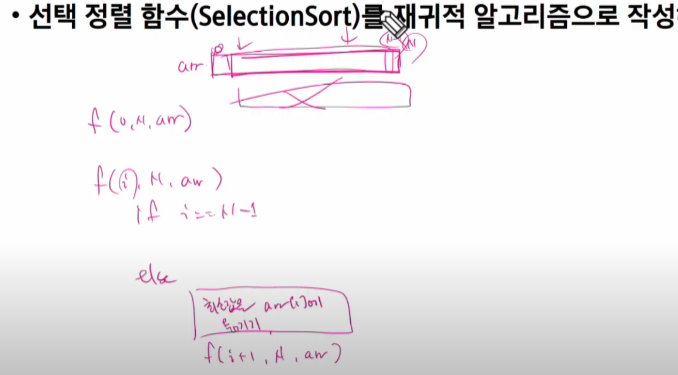 • 선택 정렬 함수(SelectionSort)를 재귀적 알고리즘으로 작성
0
arr
f(0, N, arr)
f(i, N, arr)
if i == N-1
else
최소값을 arr[i]에
옮기기
f(i+1, N, arr)